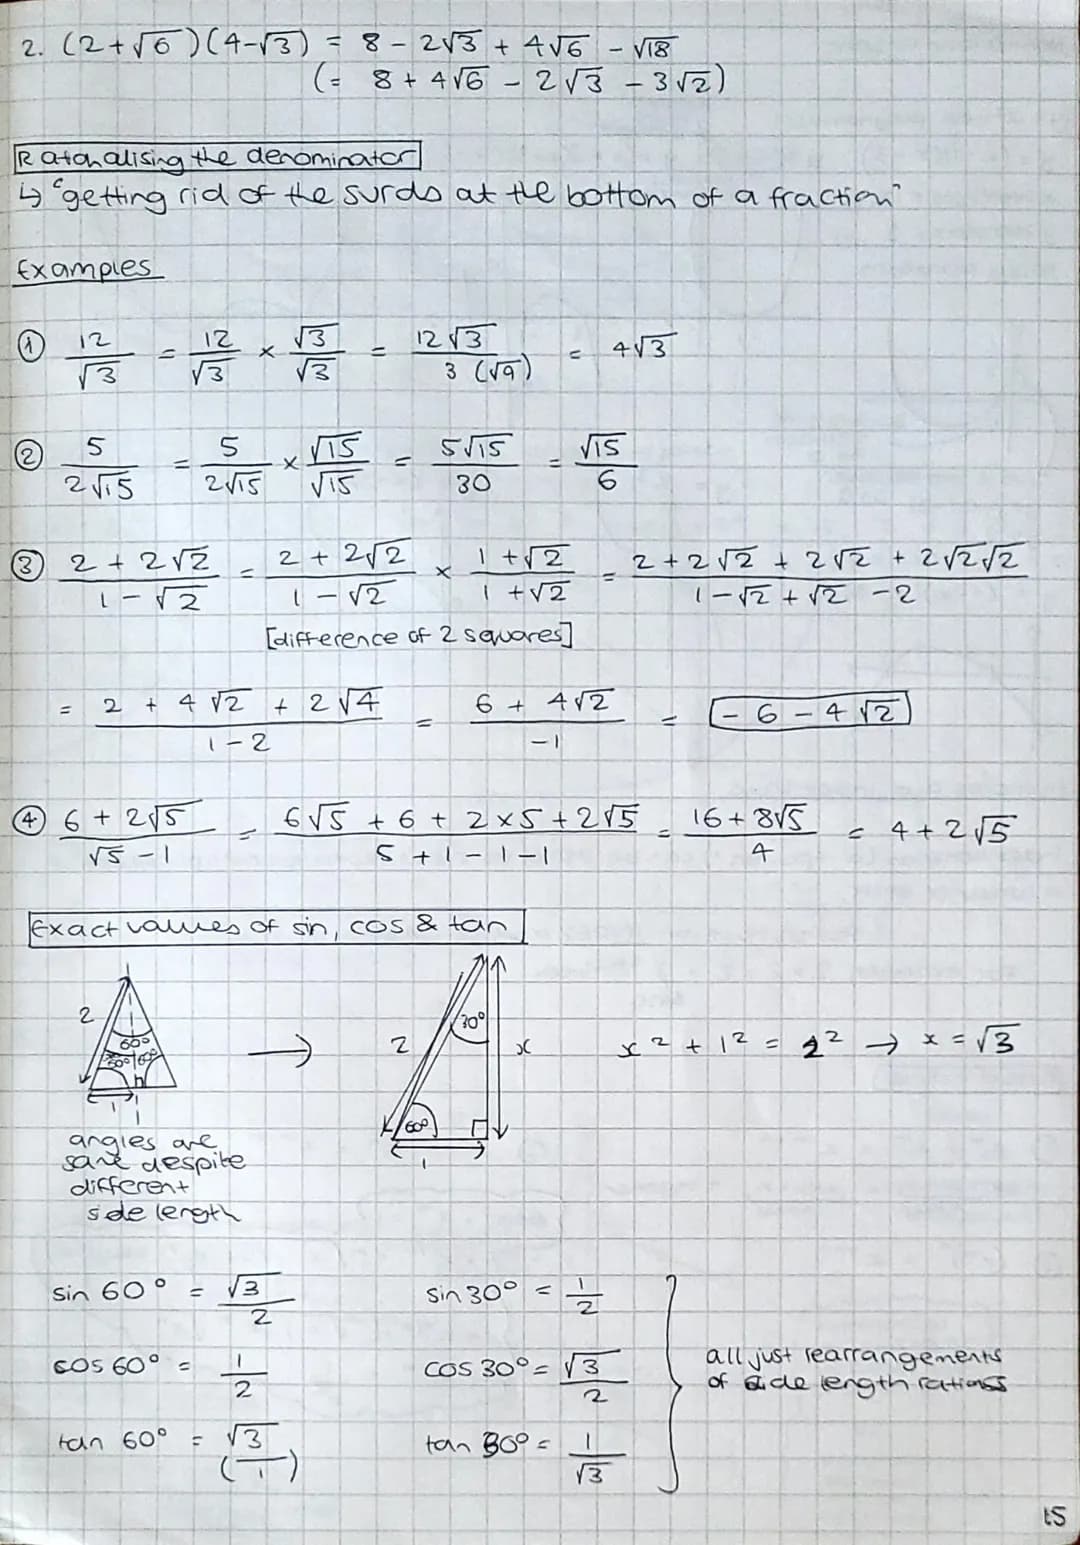 2. (2+√6)(4-√3) = 8 - 2√3 + 4√6 - √18
(= 8 + 4√6 - 2√3 - 3√2)
Rationalising the denominator
↳ "getting rid of the surds at the bottom of a fraction"
Examples
① 12/√3 = 12/√3 × √3/√3 = 12√3/3 (√9) = 4√3
② 5/2√15 = 5/2√15 × √15/√15 = 5√15/30 = √15/6
③ 2 + 2√2/1 - √2 = 2 + 2√2/1 - √2 × 1 + √2/1 + √2 = 2 + 2√2 + 2√2 + 2√2√2/1 - √2 + √2 - 2
[difference of 2 squares]
= 2 + 4√2 + 2√4/1 - 2 = 6 + 4√2/-1 = - 6 - 4√2
④ 6 + 2√5/√5 - 1 = 6√5 + 6 + 2×5 + 2√5/5 + 1 - 1 - 1 = 16 + 8√5/4 = 4 + 2√5
Exact values of sin, cos & tan
2 60° 30° 60° 1
→ 2 30° x 60° 1
x² + 1² = 2² → x = √3
angles are
same despite
different
side length
sin 60° = √3/2 sin 30° = 1/2
cos 60° = 1/2 cos 30° = √3/2
tan 60° = √3 (/1) tan 30° = 1/√3
all just rearrangements
of side length ratios
15